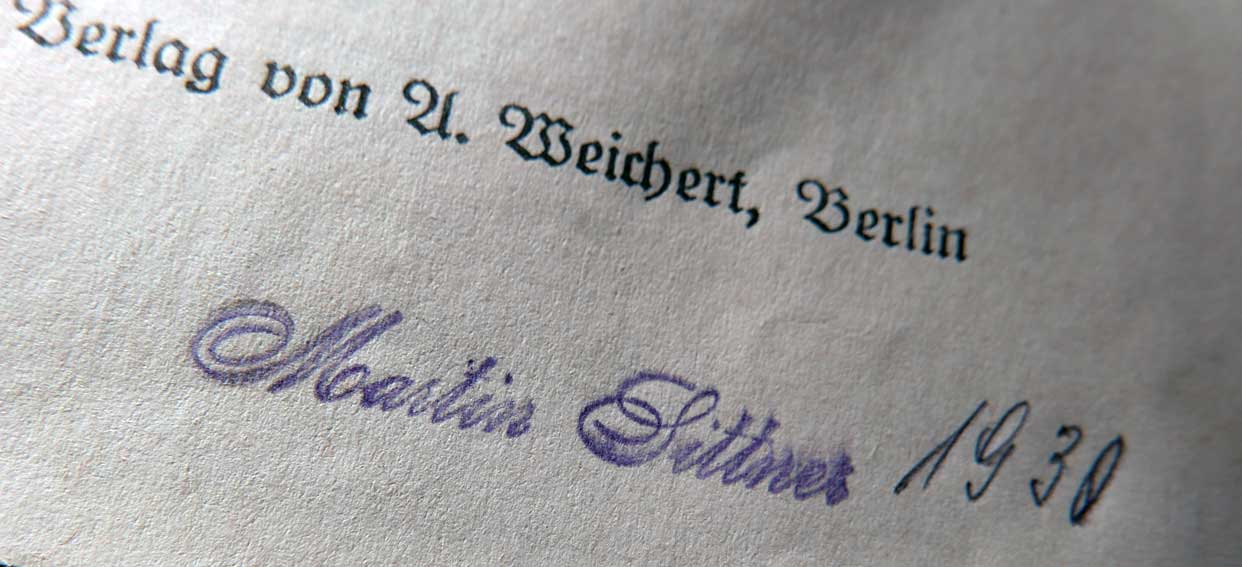 Verlag von A. Weichert, Berlin
Martin Sittner 1930